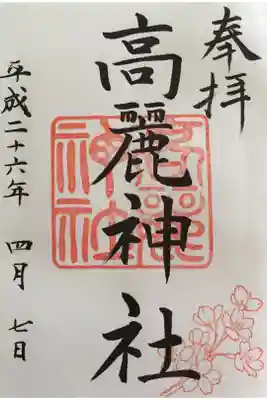 奉拝
高麗神社
平成二十六年 四月 七日